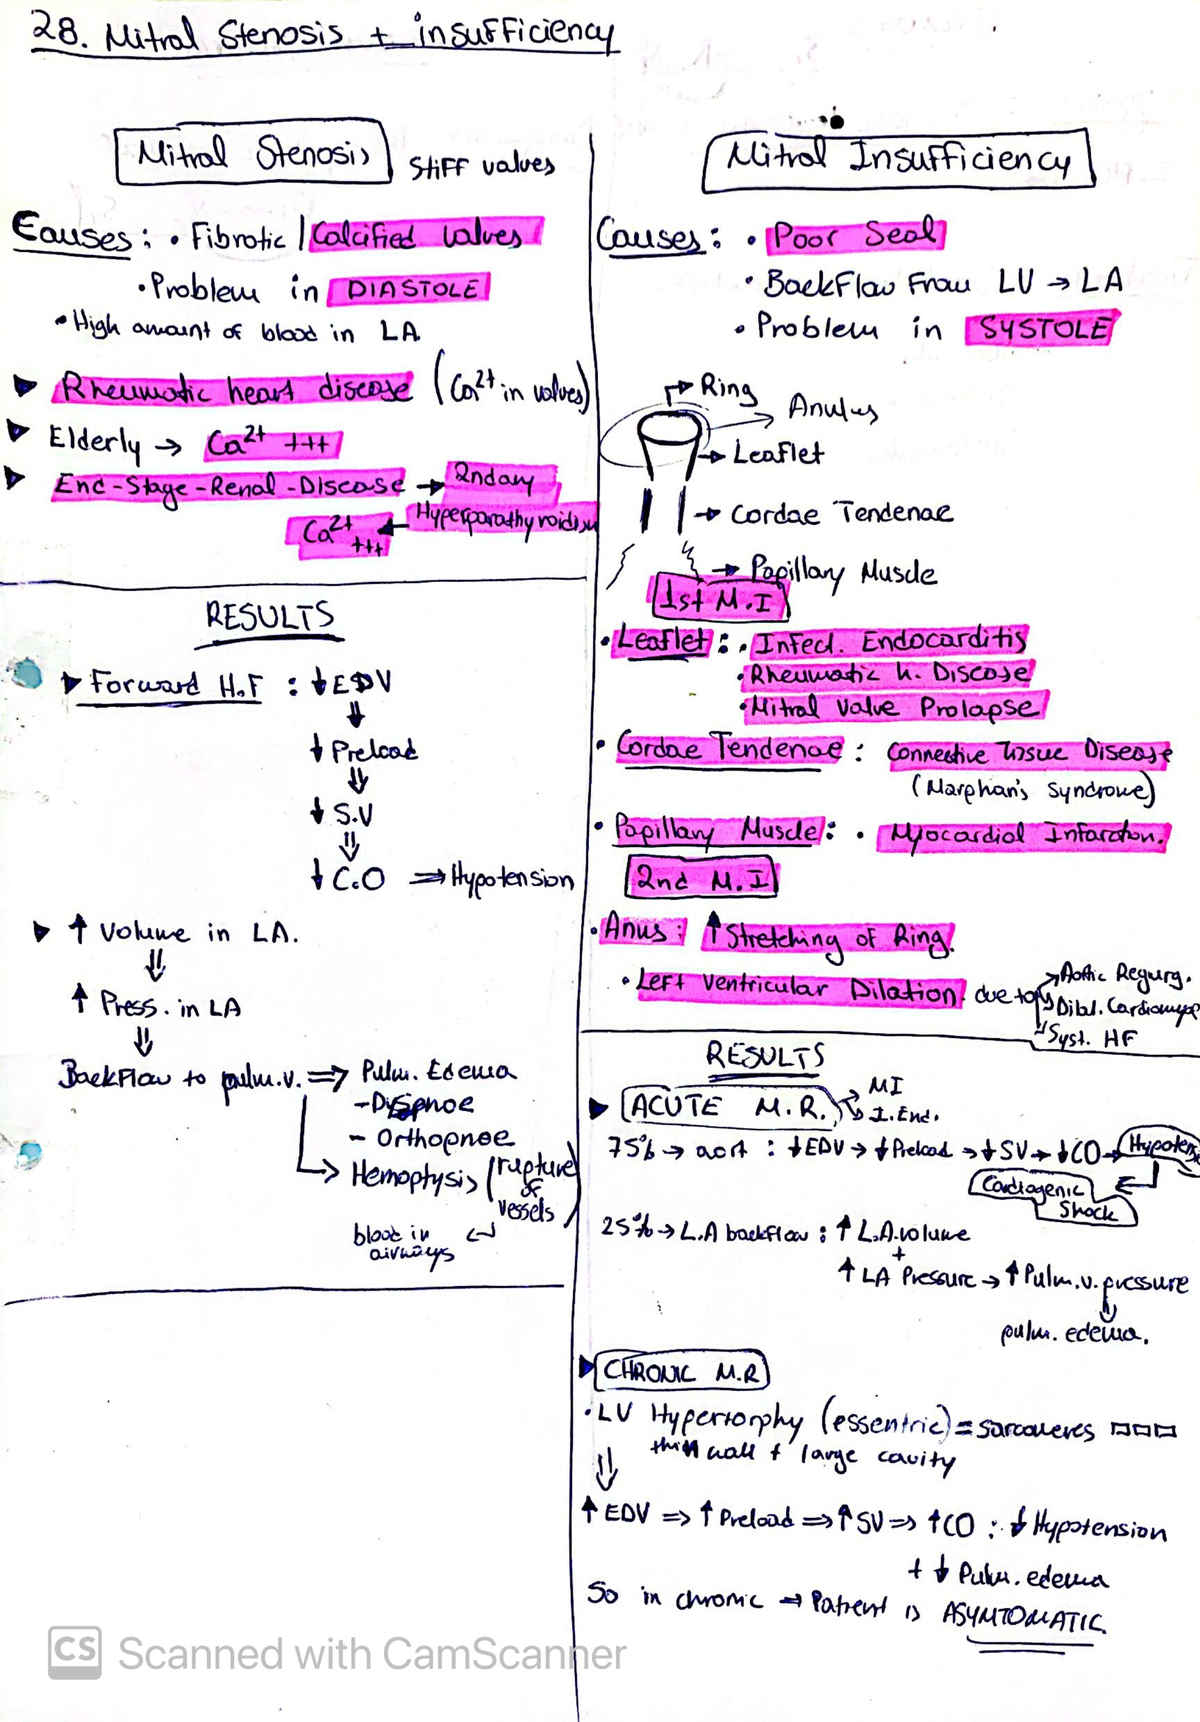 28. Mitral Stenosis + insufficiency
Mitral Stenosis
Stiff valves
Causes: • Fibrotic / Calcified valves
• Problem in DIASTOLE
• High amount of blood in LA
Rheumatic heart disease (Ca2+ in valves)
Elderly → Ca2+ +++
End-Stage-Renal-Disease → 2ndary
Hyperparathyroidism
Ca2+ +++
RESULTS
Forward H.F : ↓EDV
⇓
↓ Preload
⇓
↓ S.V
⇓
↓ C.O ⇒ Hypotension
↑ Volume in LA.
⇓
↑ Press. in LA
⇓
Backflow to pulm.v. ⇒ Pulm. Edema
- Dispnoe
- Orthopnoe
→ Hemoptysis (rupture of vessels)
blood in airways
Mitral Insufficiency
Causes: • Poor Seal
• Backflow From LV → LA
• Problem in SYSTOLE
Ring
Anulus
Leaflet
Cordae Tendenae
Papillary Muscle
1st M.I
• Leaflet: • Infect. Endocarditis
• Rheumatic h. Disease
• Mitral Valve Prolapse
• Cordae Tendenae: Connective tissue Disease
(Marphan's Syndrome)
• Papillary Muscle: • Myocardial Infarction.
2nd M.I
• Anus: ↑ Stretching of Ring.
• Left Ventricular Dilation due to
Aortic Regurg.
Dilat. Cardiomyop
Syst. HF
RESULTS
ACUTE M.R.
MI
I. End.
75% → aort : ↓EDV → ↓Preload → ↓SV → ↓CO → Hypotens
Cardiogenic Shock
25% → L.A backflow : ↑ L.A. volume
+
↑ LA Pressure → ↑ Pulm.v. pressure
⇓
pulm. edema.
CHRONIC M.R
• LV Hypertorphy (essentric) = sarcomeres
thin wall + large cavity
⇓
↑ EDV ⇒ ↑ Preload ⇒ ↑ SV ⇒ ↑CO : ↓ Hypotension
+ ↓ Pulm. edema
So in chronic → Patient is ASYMTOMATIC.
CS Scanned with CamScanner